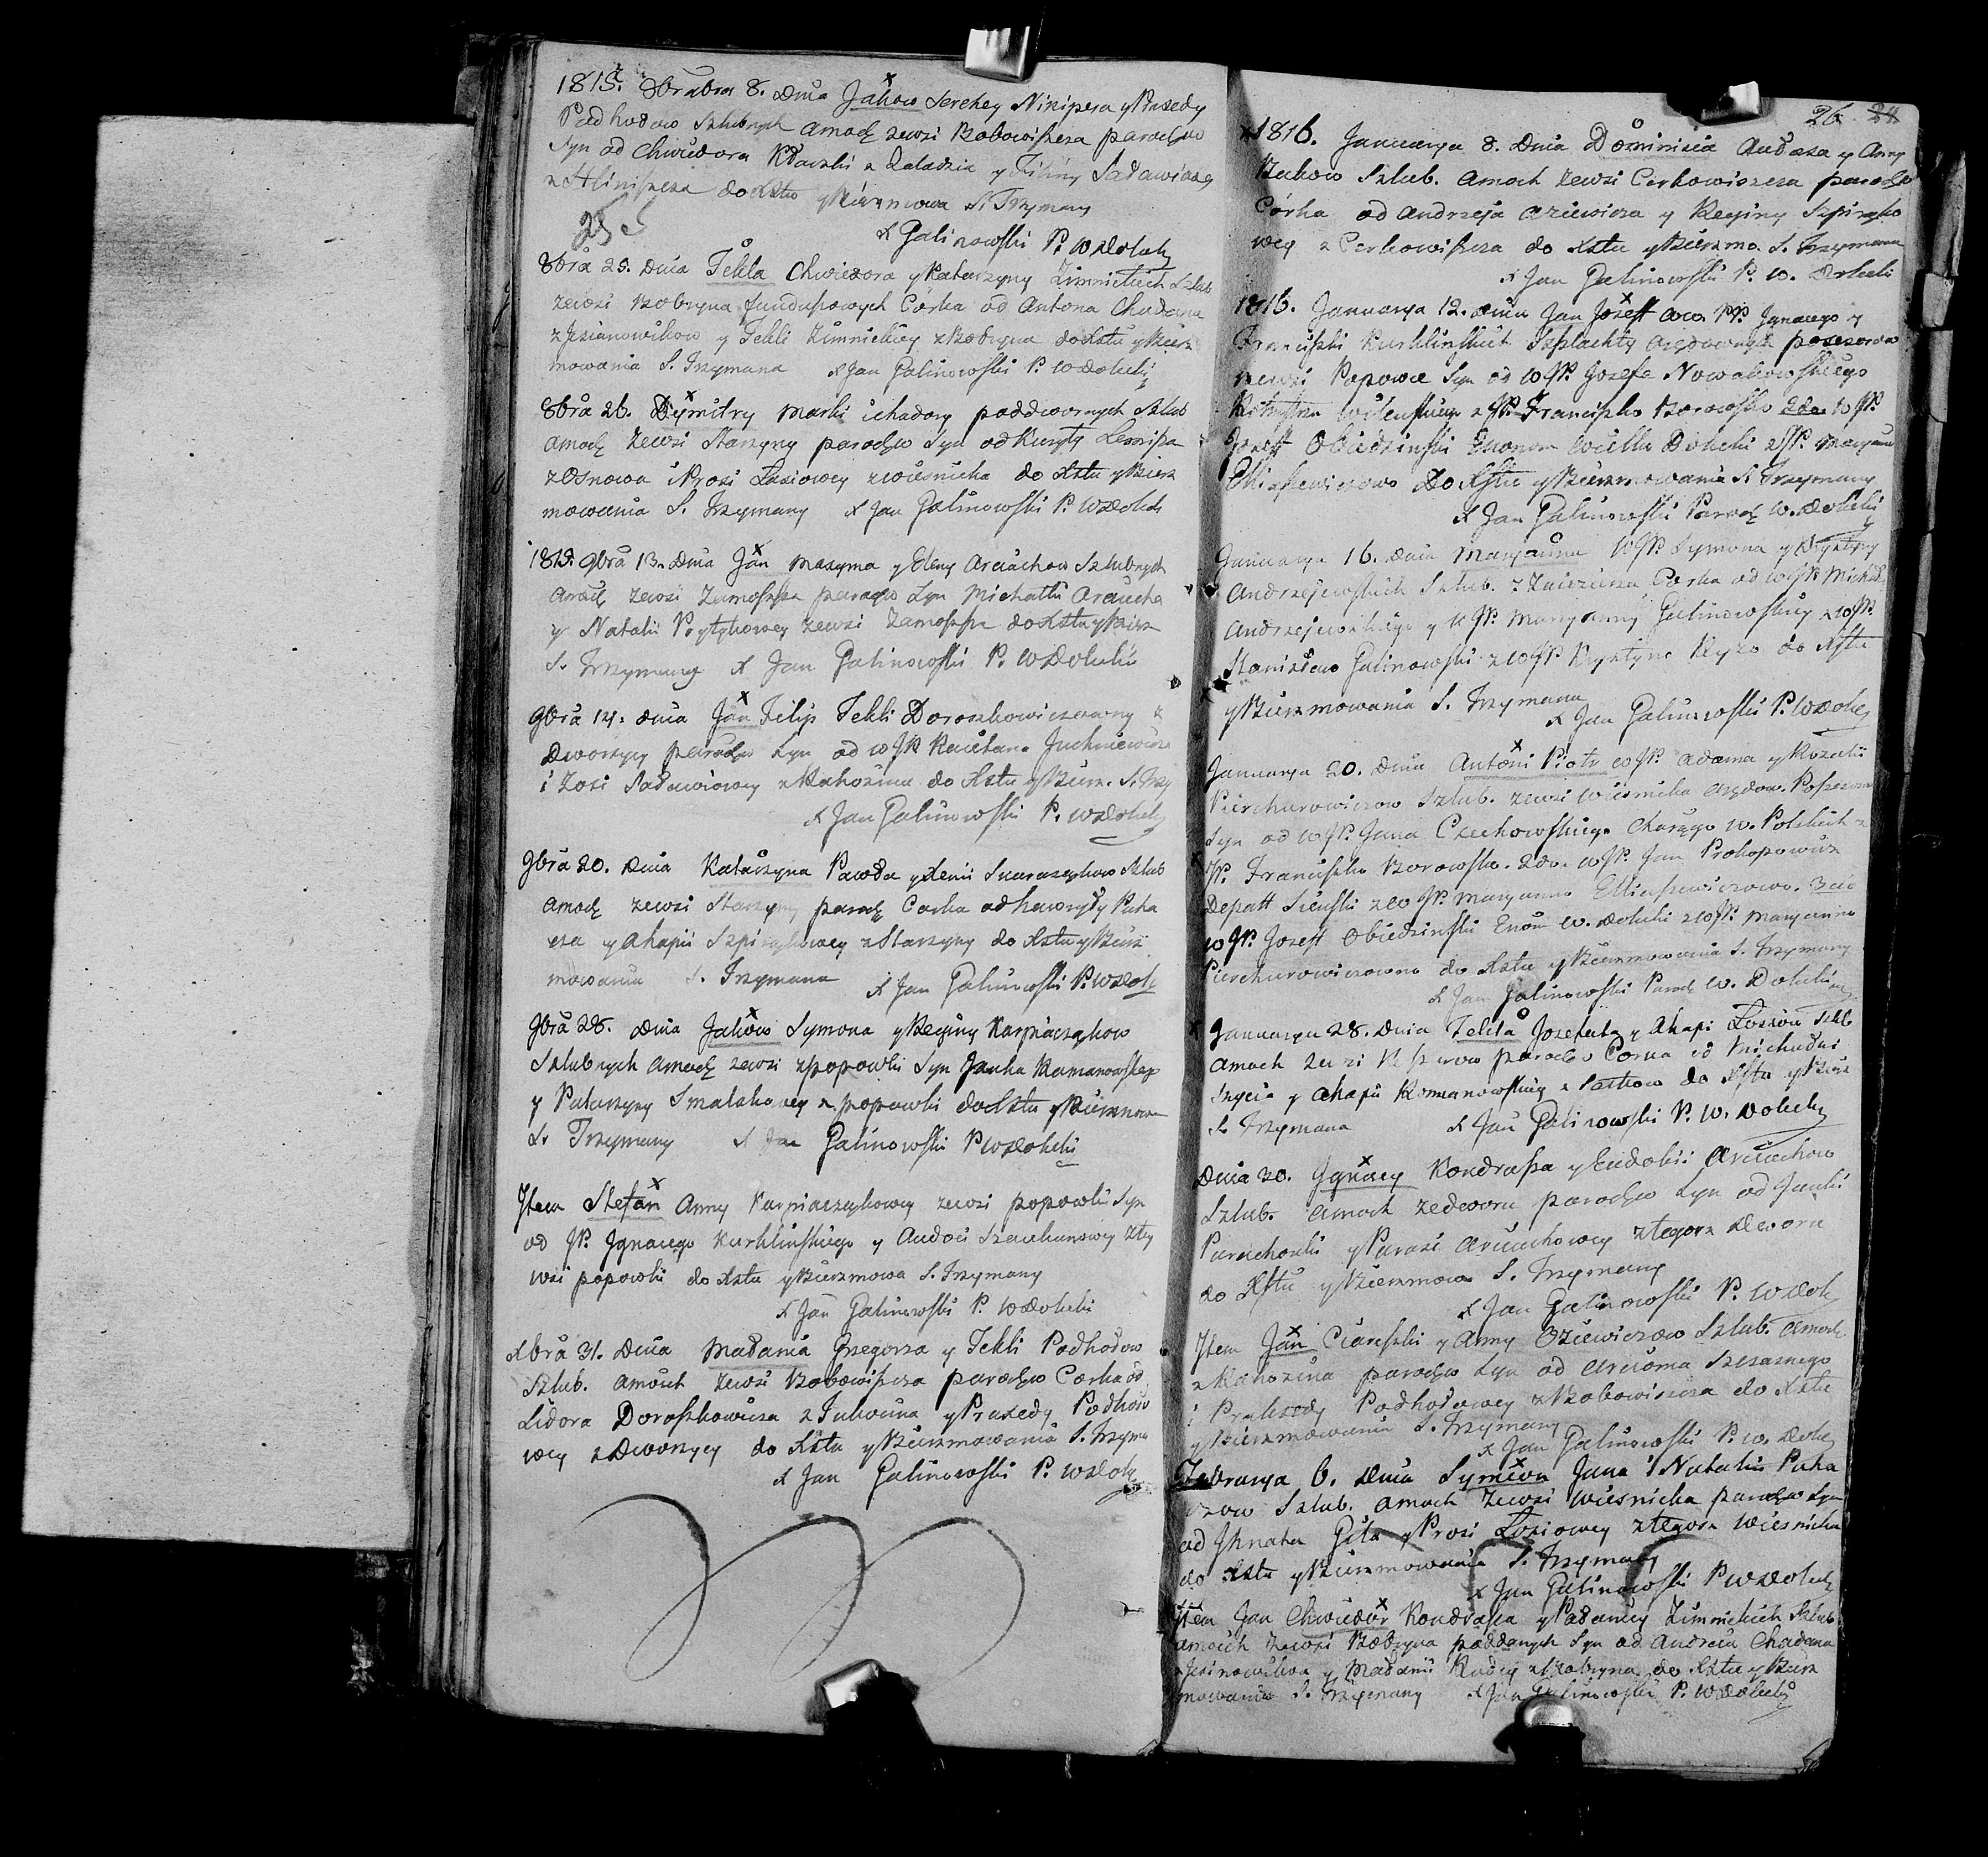 1815. 8bra bra 8. Dnia Jakow Serehey Nikipera y Praxedy
Podhodow Szlubnych amach zewsi Bobowiszcza parochow
Syn od Chwiedora z Zaladzia y Filimy Sadowiczey
z Hliniszcza do Xztu y Bierzmowa S. Trzymany
25
X Galinowski P. WDolucki
8bra 25. Dnia Tekla Chwiedora y Katarzyny Zimnickich Szlub
zewsi Bobryna funduszowych Córka od Antona Chadana
z Jesianowikow y Tekli Zimnickiey z Bobryna do Xztu y Bierz
mowania S. Trzymana X Jan Galinowski P. WDolucki
8bra 26. Dymitry Marki ichadory poddwornych Szlub
amach zewsi Starzyny parochow Syn od Kuryły Lemisza
z Osnowa i Prosi Łosiowey z Wiesnicka do Xztu y Bierz
mowania S. Trzymany X Jan Galinowski P. WDolucki
1815. 9bra 13. Dnia Jan Maxyma y Eleny Arciuchow Szlubnych
amach zewsi Zamoszsza parochow Syn Michałki Arciucha
y Natalii zewsi Zamoszsze do Xztu y Bierz
S. Trzymany X Jan Galinowski P. WDolucki
9bra 14. Dnia Jan Filip Tekli Doroszkowiczowny z
Dworzycy parochow Syn od WJP Kaietana Juchniewicza
i Zosi Sadowiczowey z Mahozina do Xztu y Bierz. S. Trzy
X Jan Galinowski P. WDolucki
9bra 20. Dnia Katarzyna Pawła y Xenii Skaraszykow Szlub
amach zewsi Starzyny paroch Corka od Hawryły Puka
cza y Ahapii Szpi z Starzyny do Xztu y Bierz
mowania S. Trzymana X Jan Galinowski P. WDoluc
9bra 28. Dnia Jakow Symona y Reginy Karpiaczykow
Szlubnych amach zewsi z popowki Syn Janka Kamanowskiego
y Katarzyny Smalahowey z popowki do Xztu y Bierzmowa
S. Trzymany X Jan Galinowski P WDolucki
Item Stefan Anny Karpiaczykowey zewsi popowki Syn
od JP. Jgnacego Kurklinskiego y Audoci Szauhunowey z tey
wsi popowki do Xztu y Bierzmowa S. Trzymany
X Jan Galinowski P. WDolucki
Xbra 31. Dnia Madania Grzegorza y Tekli Podhodow
Szlub. amach zewsi Bobowiszcza parochow Corka od
Sidora Doroszkowicza z Tukowina y Praxedy Podhodo
wey z Dworzycy do Xztu y Bierzmowania S. Trzyma
X Jan Galinowski P. WDoluc
26 24
1816. Januarya 8. Dnia Dominicia Audaza y Anny
Bukow Szlub. amach zewsi Cerkowiszcza parochow
Córka od Andrzeja Aziewicza y Reginy Szpiryko
wey z Cerkowiszcza do Xztu y Bierzmo. S. Trzymana
X Jan Galinowski P. W. Dolucki
1816. Januarya 12. Dnia Jan Jozeff WW. PP. Jgnacego y
Franciszki Kurklinskich Szplachty Arędownych posesorow
zewsi Popowce Syn od WJP. Jozefa Nowakowskiego
Rotmistrza Wileńskiego z JP. Franciszko Borowsko 2do WJP.
Jozeff Obiedzinski Ekonom Wielko Dolucki z JP. Maryanno
Eliaszewiczowo Do Xztu y Bierzmowania S. Trzymany
X Jan Galinowski Paroch W. Dolucki
Januarya 16. Dnia Maryanna WJP. Symona y Krystyny
Andrzejewskich Szlub. z Corka od WJP. Michała
Andrzejewskiego y WJP. Maryanny Galinowskiey z WJP.
Stanisław Galinowski z WJP. Krystyno Ryzo do Xztu
y Bierzmowania S. Trzymana
X Jan Galinowski P. WDoluc
Januarya 20. Dnia Antoni Piotr WJP. Adama y Rozalii
Pierchurowiczow Szlub. zewsi Wiesnicka Arędow. Possesorow
Syn od WJP. Jana Czechowskiego Chorągo w. Polskich z
JP. Franciszko Borowsko. 2do. WJP. Jan Prokopowicz
Depatt z WJP. Maryanno Eliaszewiczowo. 3cio
WJP. Jozeff Obiedzinski Ekom W. Dolucki z WJP. Maryanno
Pierchurowiczowno do Xztu y Bierzmowania S. Trzymany
X Jan Galinowski Paroch W. Dolucki
Januarya 28. Dnia Tekla Jozefata y Ahapi Łosiow Szlb
amach zewsi parochow Corka od Michałki
y Ahapii Romanowskiey z do Xztu y Bierz
S. Trzymana X Jan Galinowski P. W. Dolucki
Dnia 20. Jgnacy Kondrassa y Eudokii Arciuchow
Szlub. amach zedworu parochow Syn od Janki
Parachonki y Parasi Arciuchowey z tegoz Dworu
do Xztu y Bierzmowa S. Trzymany
X Jan Galinowski P. WDoluc
Item Jan Ciareszki y Anny Oziewiczow Szlub. amach
z Mahozina parochow Syn od Arcioma Szczasnego
i Praxedy Podhodowey z Bobowiszcza do Xztu
y Bierzmowania S. Trzymany
X Jan Galinowski P. W. Doluc
Februarya 6. Dnia Symion Jana i Natalii Puka
czow Szlub. amach zewsi Wiesnicka parochow Syn
od Jhnata Giła y Prosi Łosiowey z tegoz Wiesnicka
do Xztu y Bierzmowania S. Trzymany
X Jan Galinowski P WDoluck
Item Jan Chwiedor Kondrassa y Zimnickich Szlub
amach zewsi Bobryna poddanych Syn od Andreia Chadana
z Jesinowikow y Madanii z Bobryna do Xztu y Bierz
mowania S. Trzymany X Jan Galinowski P. WDolucki